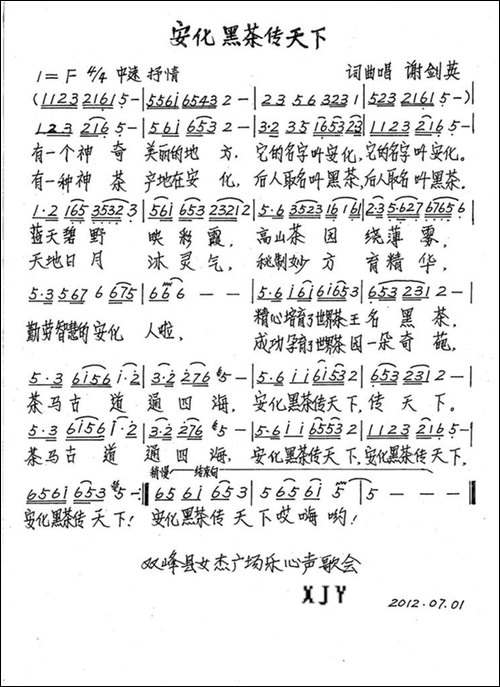 安化黑茶传天下
1=F 4/4 中速 抒情
词曲唱 谢剑英
(1123 2161 5-|5561 6543 2-|23 56 3231|523 2161 5-)|
1123 216 5-|5·61 653 2-|3·2 35 1653 23|1123 216 5-|
有一个神奇 美丽的地方，它的名字叫安化，它的名字叫安化。
有一种神茶 产地在安化，后人取名叫黑茶，后人取名叫黑茶。
1·2 165 3532 3|561 653 2321 2|5·6 3523 16 161|2·3 5·627 6765 6|
蓝天碧野 映彩霞，高山茶园 绕薄雾，
天地日月 沐灵气，秘制妙方 育精华，
5·3 5 67 6 675|666 - -|5·6 161 6165 3|653 231 2-|
勤劳智慧的安化 人啦，精心培育了世界茶王名黑茶，
成功孕育了世界茶园一朵奇苑，
5·3 6156 1·2|3·2 276 5-|5·6 11 6153 2|653 231 2-|
茶马古道 通四海，安化黑茶传天下，传天下。
5·3 6156 1·2|3·2 276 5-|5·6 11 6553 2|1123 216 5-|
茶马古道 通四海，安化黑茶传天下，安化黑茶传天下，
稍慢 结束句
6561 653 5-:‖65 61 653|5 65 61 5|5 - - -‖
安化黑茶传天下！安化黑茶传天下哎嗨哟！
双峰县女杰广场乐心声歌会
XJY
2012.07.01